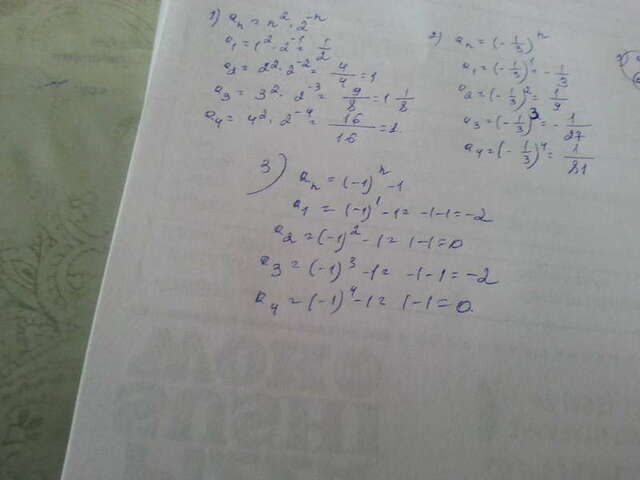 1) aₙ = n² · 2⁻ⁿ
a₁ = 1² · 2⁻¹ = 1/2
a₂ = 2² · 2⁻² = 4/4 = 1
a₃ = 3² · 2⁻³ = 9/8 = 1 1/8
a₄ = 4² · 2⁻⁴ = 16/16 = 1
2) aₙ = (-1/3)ⁿ
a₁ = (-1/3)¹ = -1/3
a₂ = (-1/3)² = 1/9
a₃ = (-1/3)³ = -1/27
a₄ = (-1/3)⁴ = 1/81
3) aₙ = (-1)ⁿ - 1
a₁ = (-1)¹ - 1 = -1-1 = -2
a₂ = (-1)² - 1 = 1-1 = 0
a₃ = (-1)³ - 1 = -1-1 = -2
a₄ = (-1)⁴ - 1 = 1-1 = 0.